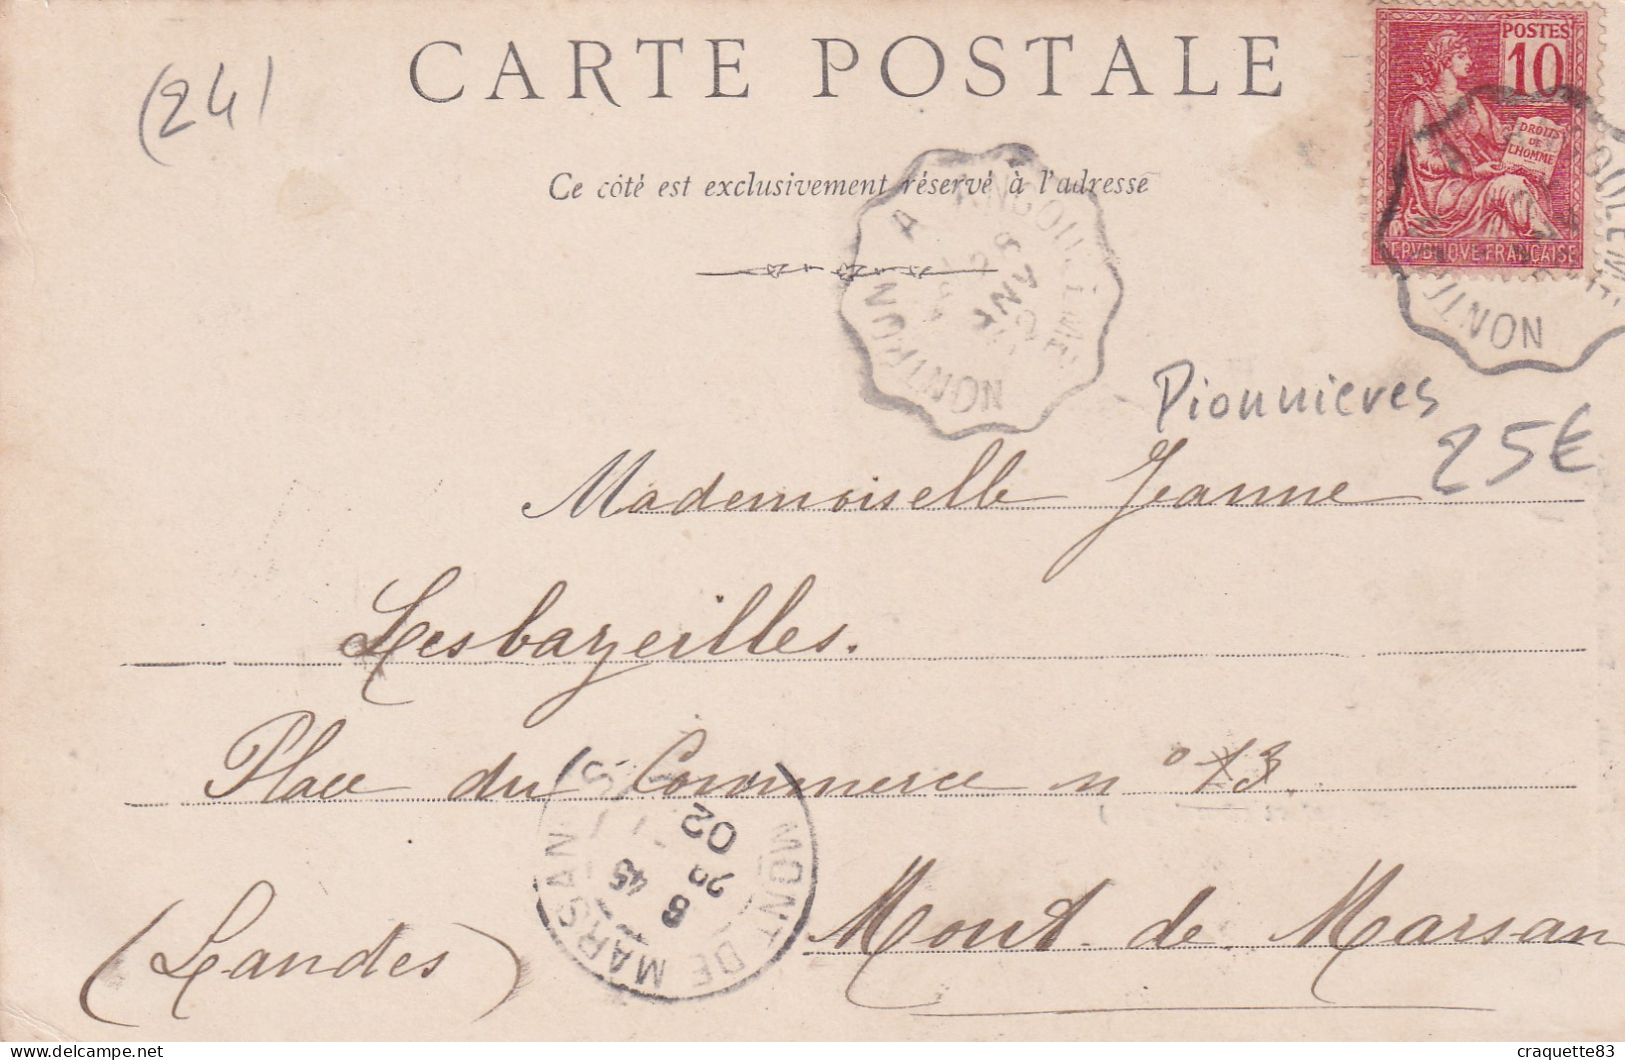 CARTE POSTALE
(24)
Ce côté est exclusivement réservé à l'adresse
POSTES
10
DROITS
DE
L'HOMME
REPVBLIQVE FRANÇAISE
ANGOULEME
A
MONTRON
8
JANV
02
Pionnières
25€
Mademoiselle Jeanne
Lesbazeilles.
Place du Commerce n° 13.
Mont. de. Marsan
(Landes)
MONT DE MARSAN
8
45
02
delcampe.net
craquette83